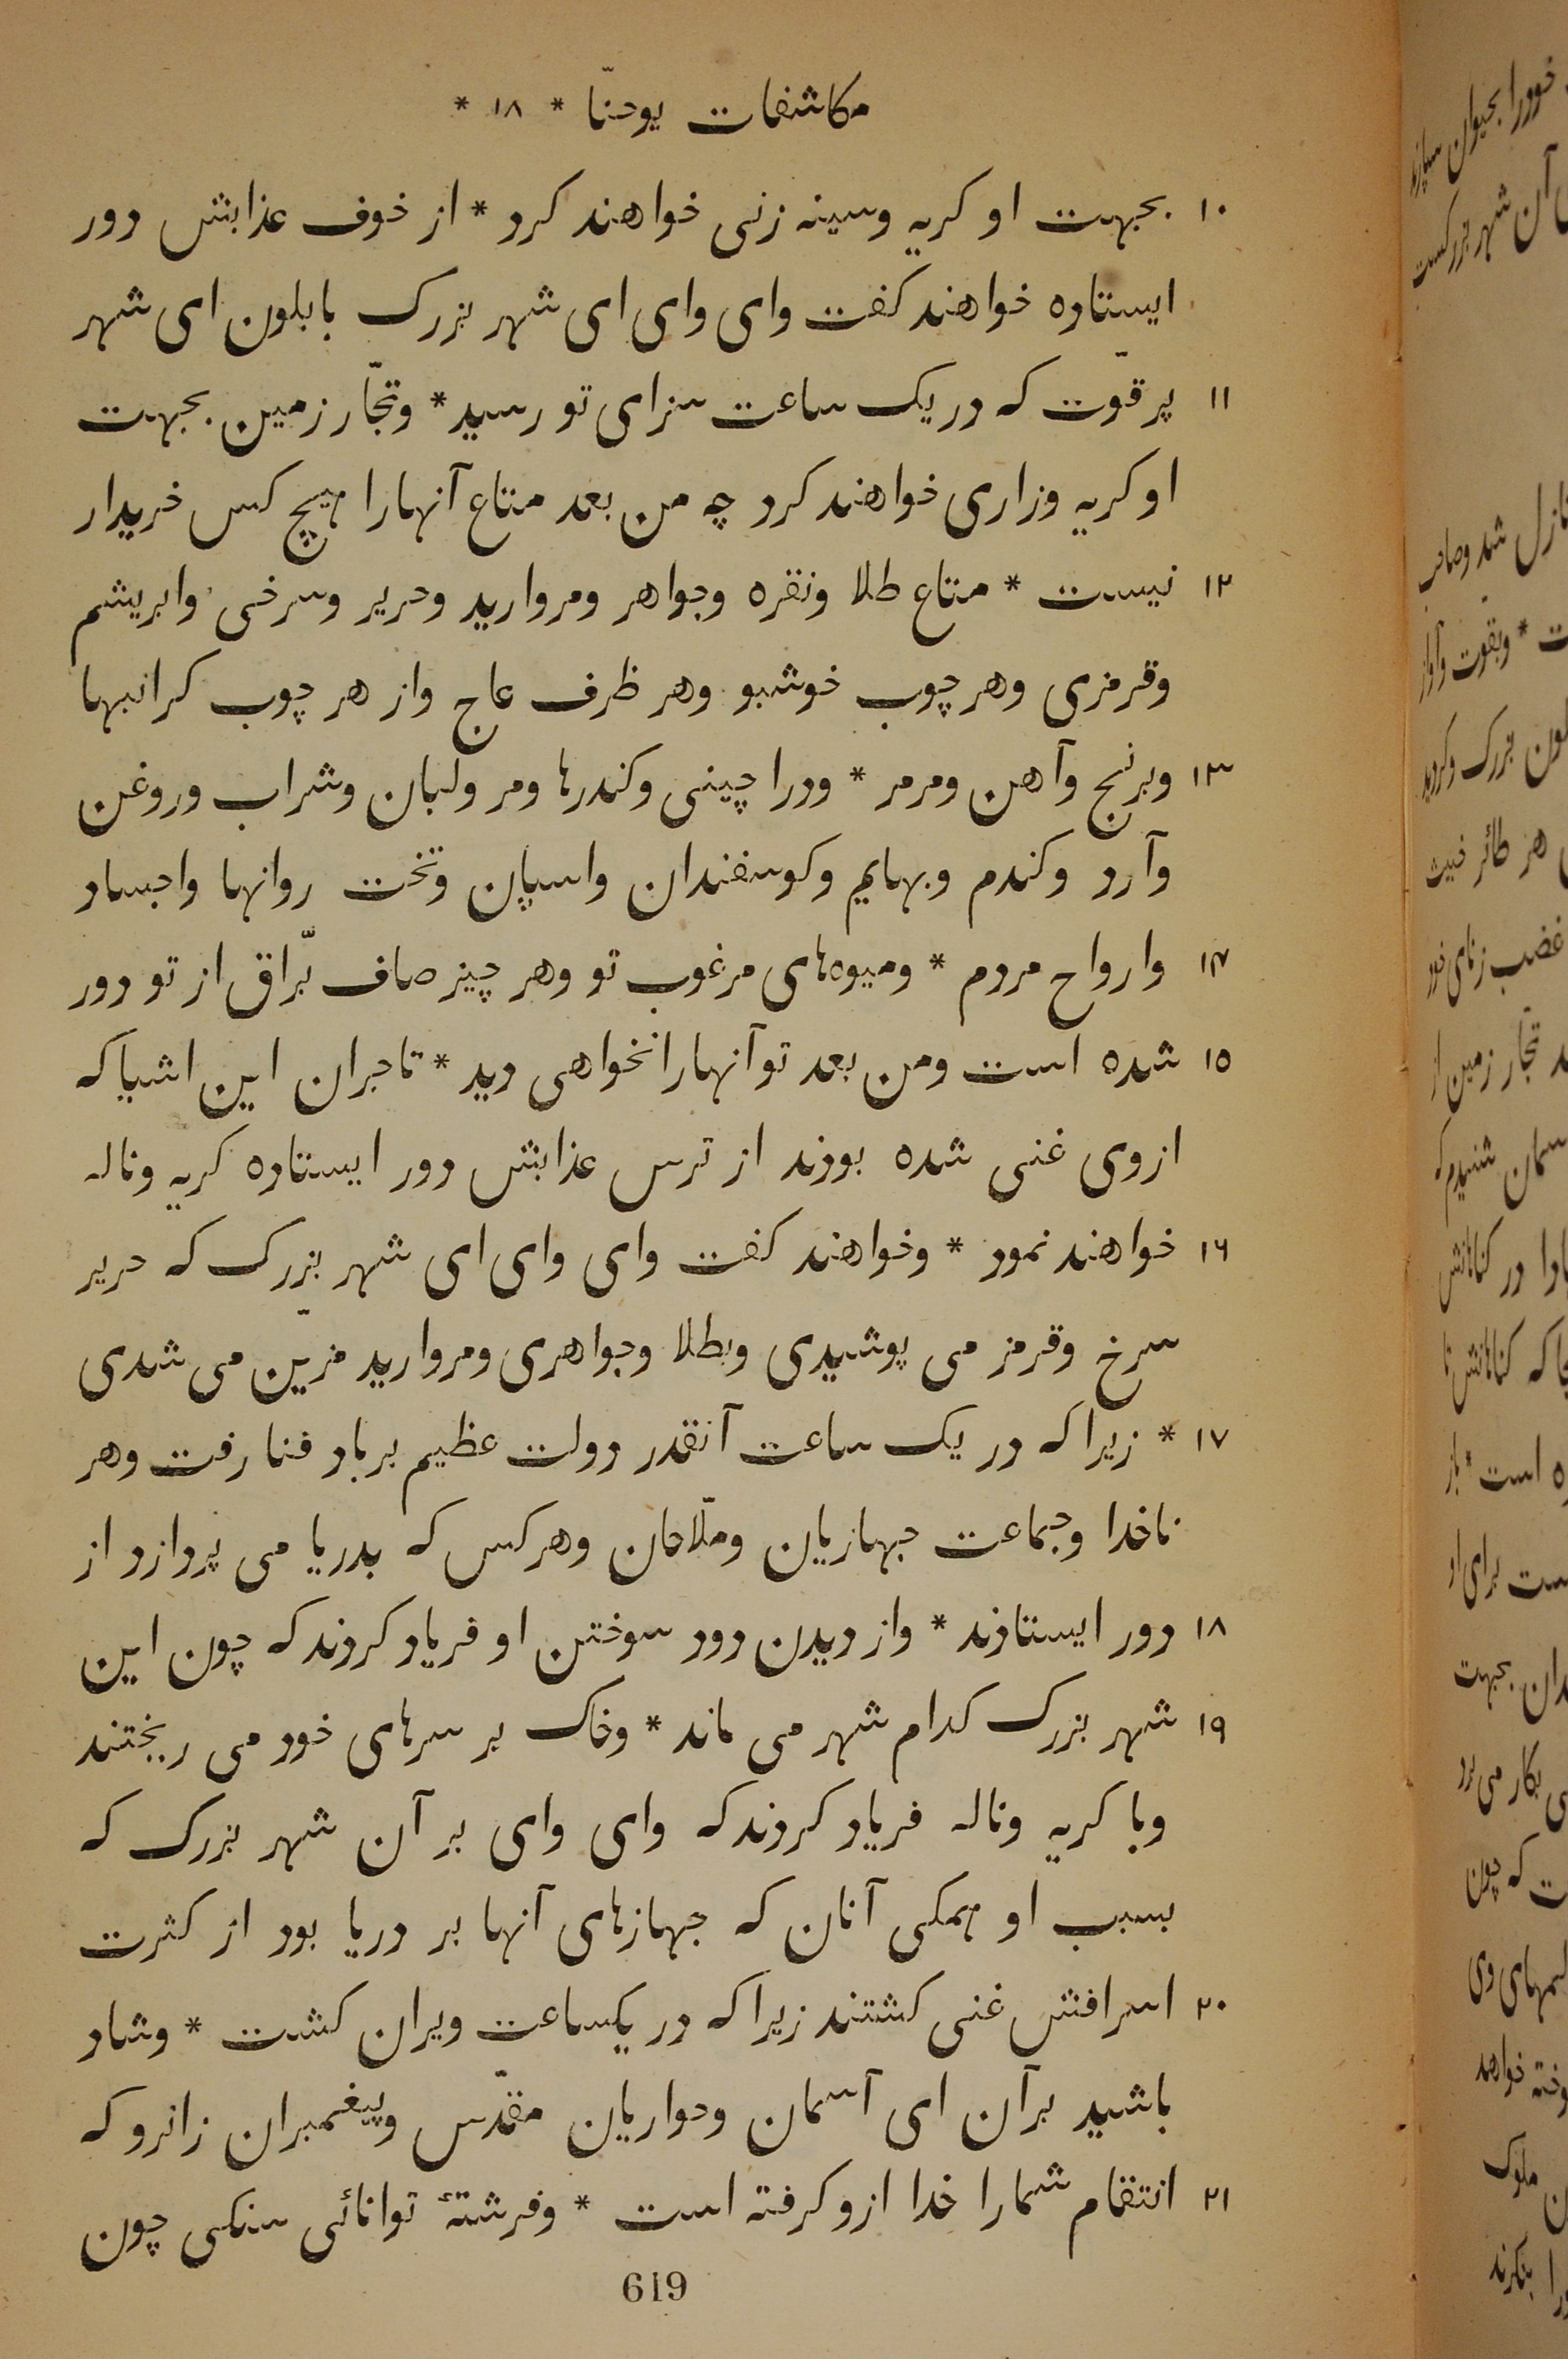 مکاشفات یوحنّا * ۱۸ *
۱۰ بجهت او کریه وسینه زنی خواهند کرد * از خوف عذابش دور
ایستاده خواهند کفت وای وای ای شهر بزرک بابلون ای شهر
۱۱ پر قوّت که در یک ساعت سزای تو رسید * وتجّار زمین بجهت
او کریه وزاری خواهند کرد چه من بعد متاع آنهارا هیچ کس خریدار
۱۲ نیست * متاع طلا ونقره وجواهر ومروارید وحریر وسرخی وابریشم
وقرمزی وهر چوب خوشبو وهر ظرف عاج واز هر چوب کرانبها
۱۳ وبرنج وآهن ومرمر * ودرا چینی وکندرها ومر ولبان وشراب وروغن
وآرد وکندم وبهایم وکوسفندان واسپان وتخت روانها واجساد
۱۴ وارواح مردم * ومیوه‌های مرغوب تو وهر چیز صاف برّاق از تو دور
۱۵ شده است ومن بعد تو آنهارا نخواهی دید * تاجران این اشیا که
ازوی غنی شده بودند از ترس عذابش دور ایستاده کریه وناله
۱۶ خواهند نمود * وخواهند کفت وای وای ای شهر بزرک که حریر
سرخ وقرمز می پوشیدی وبطلا وجواهری ومروارید مزیّن می شدی
۱۷ * زیرا که در یک ساعت آنقدر دولت عظیم برباد فنا رفت وهر
ناخدا وجماعت جهازیان وملّاحان وهر کس که بدریا می پردازد از
۱۸ دور ایستادند * واز دیدن دود سوختن او فریاد کردند که چون این
۱۹ شهر بزرک کدام شهر می ماند * وخاک بر سرهای خود می ریختند
وبا کریه وناله فریاد کردند که وای وای بر آن شهر بزرک که
بسبب او همکی آنان که جهازهای آنها بر دریا بود از کثرت
۲۰ اسرافش غنی کشتند زیرا که در یکساعت ویران کشت * وشاد
باشید برآن ای آسمان وحواریان مقدّس وپیغمبران زانرو که
۲۱ انتقام شمارا خدا ازو کرفته است * وفرشتهٔ توانائی سنکی چون
619